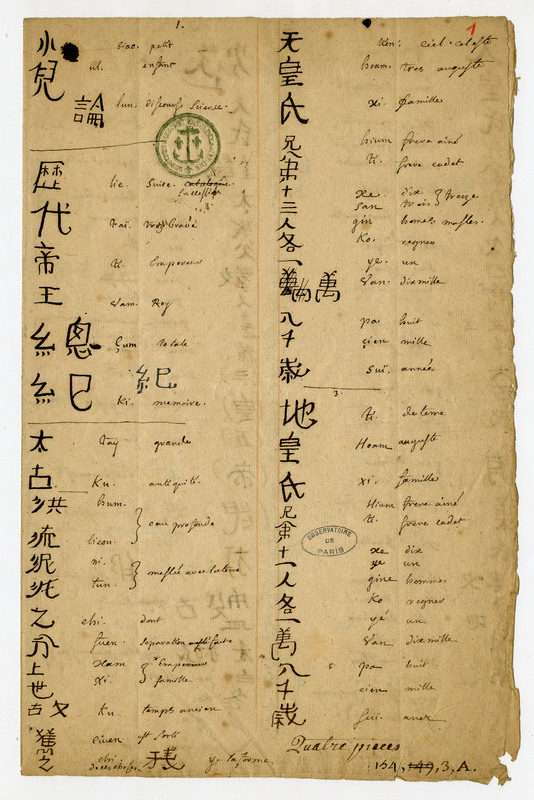 1.
小 siao. petit
兒 ul. enfant
論 lun. discours Science.
歷 lie. Suite. catalogue.
代 Taï.
帝 ti. Empereur
王 Vam. Roy
總 Çum totale
紀 紀 Ki. memoire.
太 Tay grande
古 Ku. antiquité.
洪 hum.
流 lieou. eau profonde
泥 ni.
沌 tun. meslée avec la terre
之 chi. dont
分 fuen. Separation
上 xam Empereur
世 xi. famille
故 Ku temps ancien
舊 est sorti
之 chi
残 ye la forme
1
天 tien: ciel. celeste
皇 hoam. tres auguste
氏 xi. famille
兄 hium frere ainé
弟 ti. frere cadet
十 xe. dix
三 san trois } treize
人 gin homes masles.
各 Ko. regner
一 ye. un
萬 萬 Van. dixmille
八 pa huit
千 çien mille
歲 Suï. année
3.
地 ti. de terre
皇 Hoam auguste
氏 xi. famille
兄 Hium frere ainé
弟 ti. frere cadet
十 xe dix
一 ye un
人 gine hommes
各 Ko regner
一 ye un
萬 Van dixmille
八 pa huit
千 cien mille
歲 Suï.
OBSERVATOIRE DE PARIS
Quatre pieces
154, 149, 3, A.